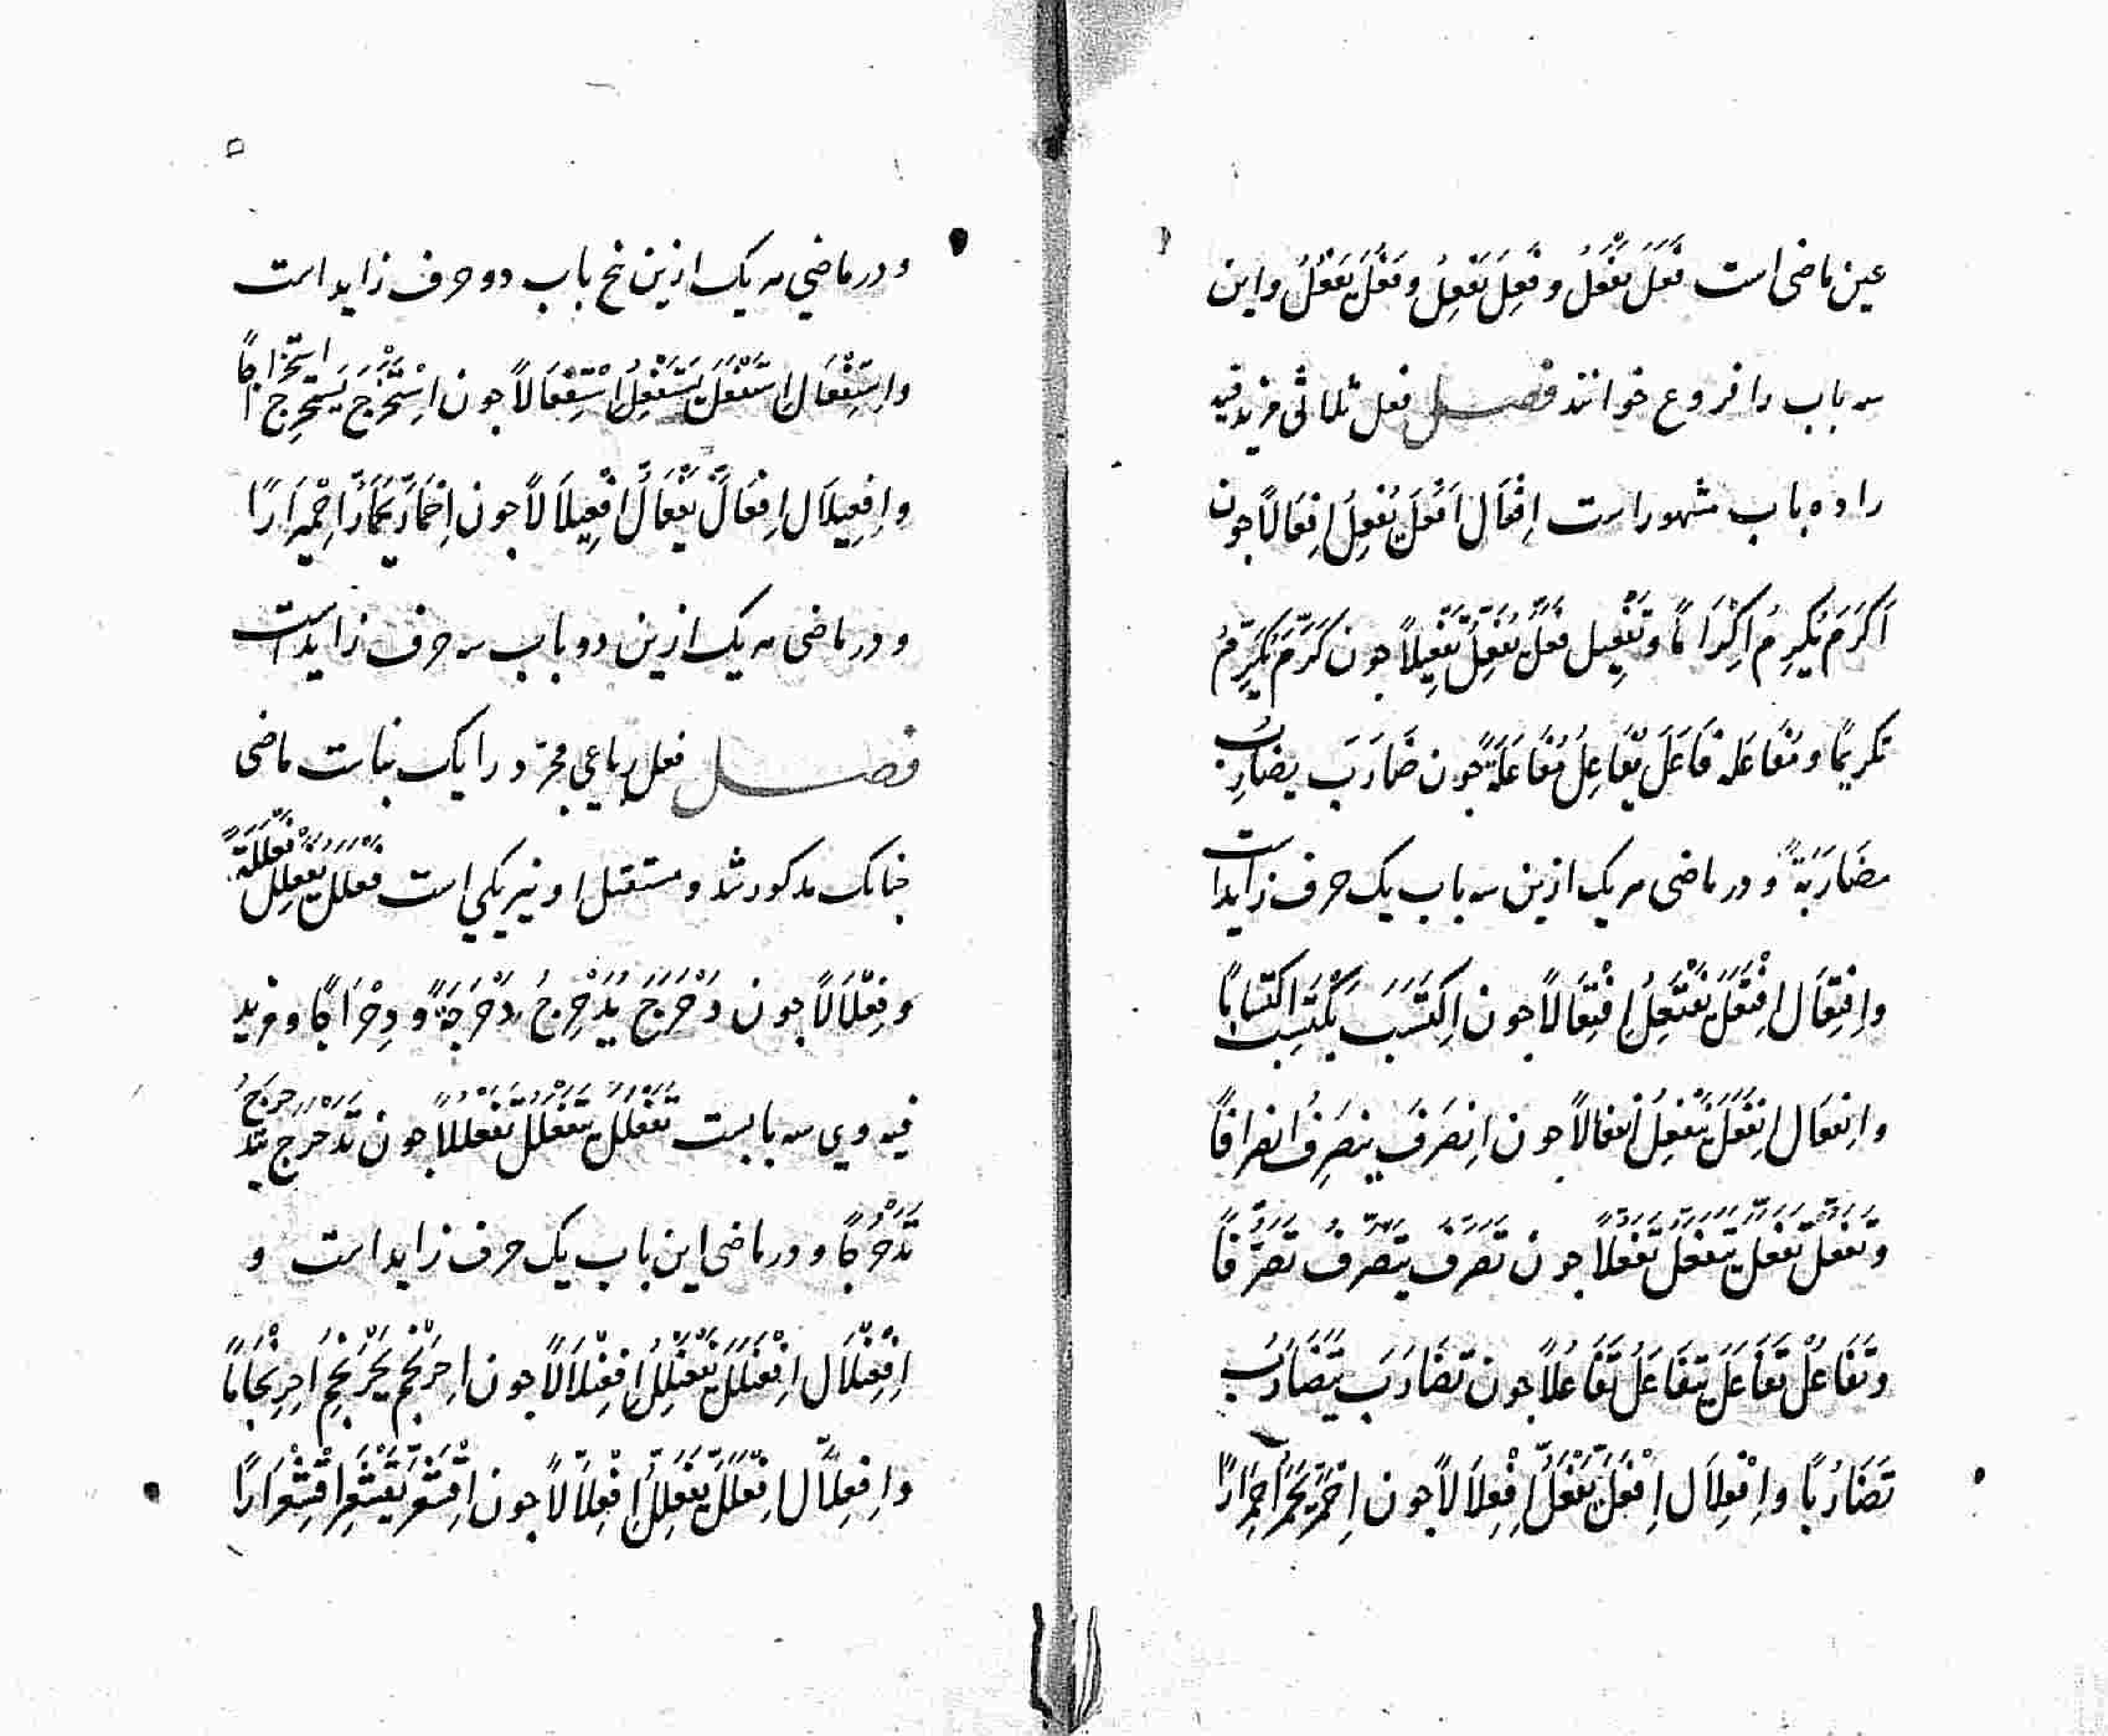 عین ماضی است فَعَلَ یَفْعَلُ و فَعِلَ یَفْعِلُ و فَعُلَ یَفْعُلُ و این
سه باب را فروع خوانند فصل فعل ثلاثی مزید فیه
را ده باب مشهور است اِفْعَال اَفْعَلَ یُفْعِلُ اِفْعَالاً چون
اَکْرَمَ یُکْرِمُ اِکْرَامًا و تَفْعِیل فَعَّلَ یُفَعِّلُ تَفْعِیلاً چون کَرَّمَ یُکَرِّمُ
تکریمًا و مُفَاعَله فَاعَلَ یُفَاعِلُ مُفَاعَلَةً چون ضَارَبَ یضارِبُ
مضَارَبَةً و در ماضی هر یک ازین سه باب یک حرف زاید است
و اِفْتِعَال اِفْتَعَلَ یَفْتَعِلُ اِفْتِعَالاً چون اِکْتَسَبَ یَکْتَسِبُ اکتسابًا
و اِنفِعَال اِنْفَعَلَ یَنْفَعِلُ اِنْفِعَالاً چون اِنْصَرَفَ ینصَرِفُ انصرافًا
و تَفَعُّل تَفَعَّلَ یَتَفَعَّلُ تَفَعُّلاً چون تَصَرَّفَ یَتَصَرَّفُ تَصَرُّفًا
و تَفَاعُل تَفَاعَلَ یَتَفَاعَلُ تَفَاعُلاً چون تَضَارَبَ یَتَضَارَبُ
تَضَارُبًا و اِفْعِلاَل اِفْعَلَّ یَفْعَلُّ اِفْعِلاَلاً چون اِحْمَرَّ یَحْمَرُّ اِحْمِرَارًا
و در ماضی هر یک ازین پنج باب دو حرف زاید است
و اِسْتِفْعَال اِسْتَفْعَلَ یَسْتَفْعِلُ اِسْتِفْعَالاً چون اِسْتَخْرَجَ یَستَخرِجُ استخراجًا
و اِفْعِیلاَل اِفْعَالَّ یَفْعَالُّ اِفْعِیلاَلاً چون اِحْمَارَّ یَحْمَارُّ اِحْمِیرَارًا
و در ماضی هر یک ازین دو باب سه حرف زاید است
فصل فعل رباعی مجرّد را یک بناست ماضی
چنانک مذکور شد و مستقبل او نیز یکی است فَعْلَلَ یُفَعْلِلُ فَعْلَلَةً
و فِعْلاَلاً چون دَحْرَجَ یُدَحْرِجُ دَحْرَجَةً و دِحْرَاجًا و مزید
فیه وی سه بابست تَفَعْلَلَ یَتَفَعْلَلُ تَفَعْلُلاً چون تَدَحْرَجَ یَتَدَحْرَجُ
تَدَحْرُجًا و در ماضی این باب یک حرف زاید است و
اِفْعِنْلاَل اِفْعَنْلَلَ یَفْعَنْلِلُ اِفْعِنْلاَلاً چون اِحْرَنْجَمَ یَحْرَنْجِمُ اِحْرِنْجَامًا
و اِفْعِلاَّل اِفْعَلَلَّ یَفْعَلِلُّ اِفْعِلاَّلاً چون اِقْشَعَرَّ یَقْشَعِرُّ اِقْشِعْرَارًا